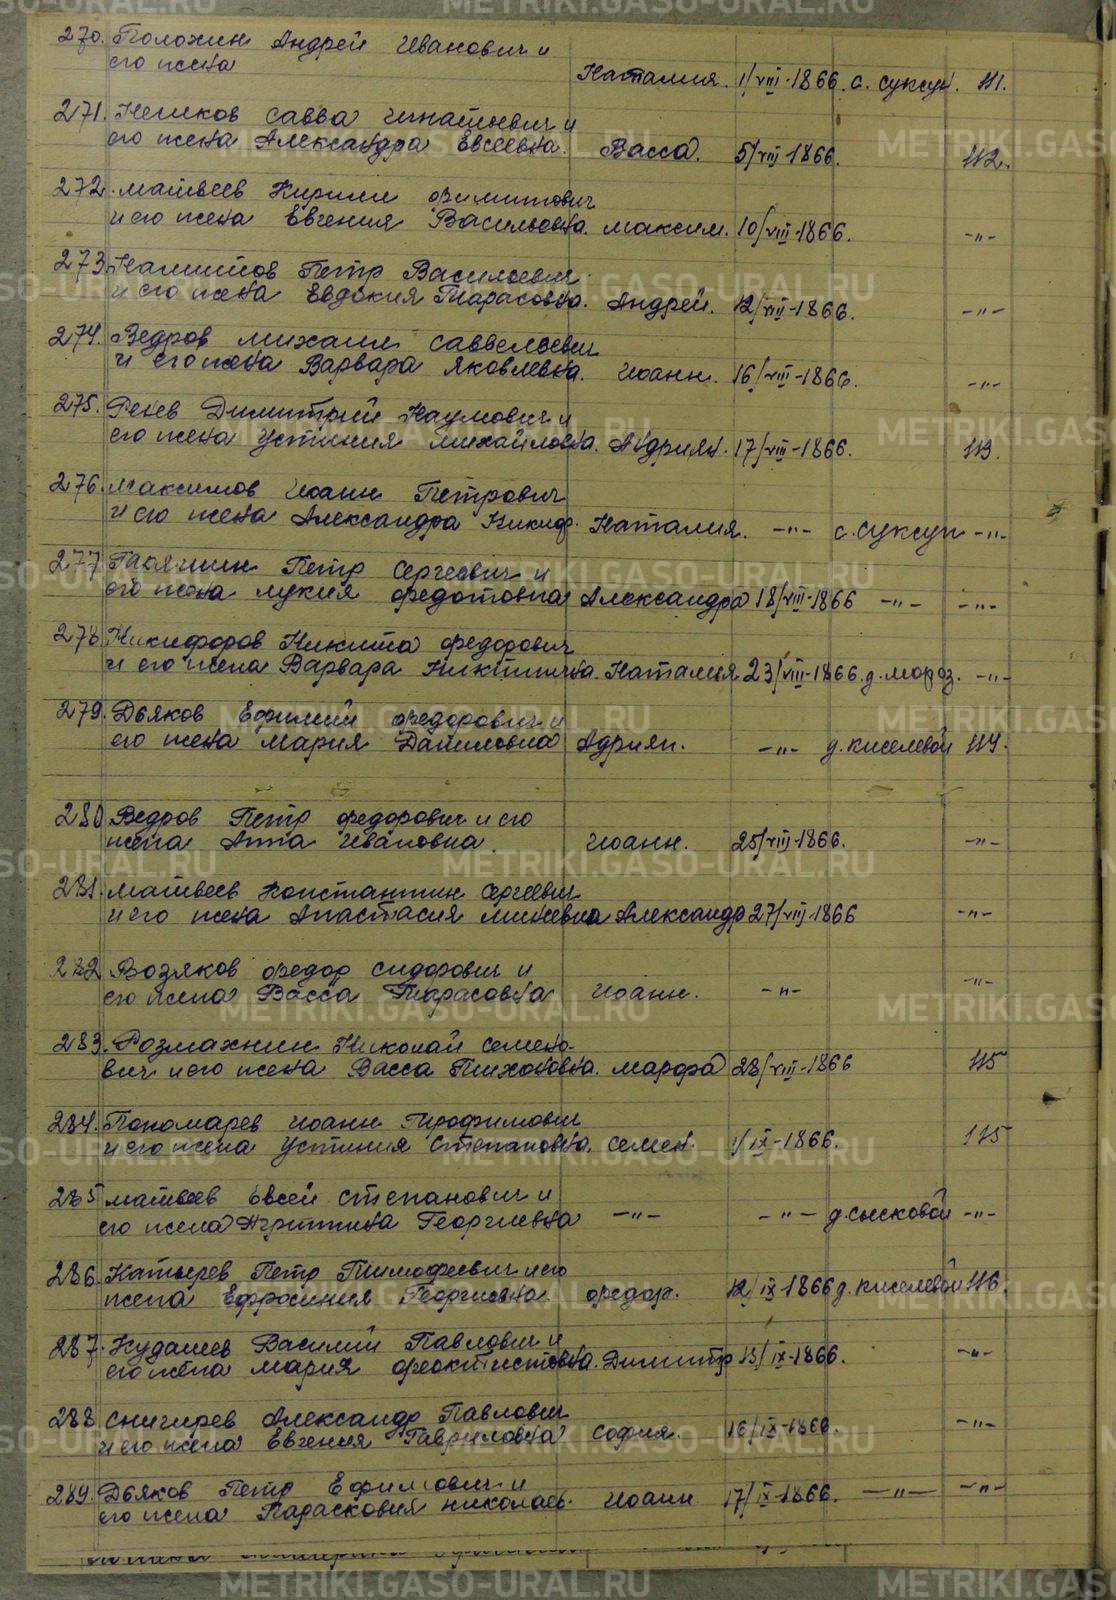 270. Положин Андрей Иванович и
его жена Наталия. 1/VIII-1866. с. Суксун. 111.
271. Савва Игнатьевич и
его жена Александра Евсеевна. Васса. 5/VIII-1866. 112.
272. Матвеев Кирилл Филиппович
и его жена Евгения Васильевна. Максим. 10/VIII-1866. -"-
273. Петр Васильевич
и его жена Евдокия Тарасовна. Андрей. 12/VIII-1866. -"-
274. Ведров Михаил Саввельевич
и его жена Варвара Яковлевна. Иоанн. 16/VIII-1866. -"-
275. Димитрий Наумович и
его жена Устиния Михайловна. Адриян. 17/VIII-1866. 113.
276. Максимов Иоанн Петрович
и его жена Александра Никиф. Наталия. -"- с. Суксун -"-
277. Петр Сергеевич и
его жена Лукия Федотовна Александра 18/VIII-1866 -"- -"-
278. Никифоров Никита Федорович
и его жена Варвара Никитична. Наталия 23/VIII-1866. д. Мороз. -"-
279. Дьяков Ефимий Федорович и
его жена Мария Даниловна Адриян. -"- д. Киселевой 114.
280 Ведров Петр Федорович и его
жена Анна Ивановна. Иоанн. 25/VIII-1866. -"-
281. Матвеев Константин Сергеевич
и его жена Анастасия Минеевна Александр 27/VIII-1866 -"-
282 Возяков Федор Сидорович и
его жена Васса Тарасовна Иоанн. -"- -"-
283. Розмахнин Николай Семено-
вич и его жена Васса Тихоновна. Марфа 28/VIII-1866 115
284. Пономарев Иоанн Трофимович
и его жена Устиния Степановна. Семен. 1/IX-1866. 115
285 Матвеев Евсей Степанович и
его жена Агриппина Георгиевна -"- -"- д. Сысковой -"-
286. Катырев Петр Тимофеевич и его
жена Ефросиния Георгиевна Федор. 12/IX-1866 д. Киселевой 116.
287. Кудашев Василий Павлович и
его жена Мария Феоктистовна. Димитр 13/IX-1866. -"-
288 Снигирев Александр Павлович
и его жена Евгения Гавриловна София. 16/IX-1866. -"-
289. Дьяков Петр Ефимович и
его жена Парасковия Николаев. Иоанн 17/IX-1866. -"- -"-
METRIKI.GASO-URAL.RU